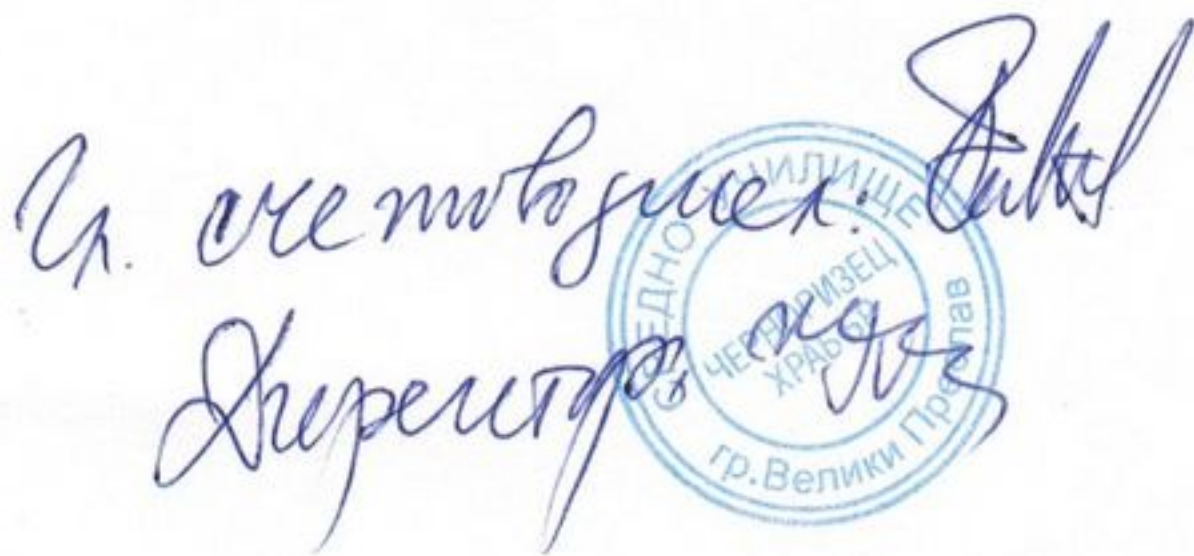 Гл. счетоводител:
Директор:
СРЕДНО УЧИЛИЩЕ
ЧЕРНОРИЗЕЦ
ХРАБЪР
гр. Велики Преслав